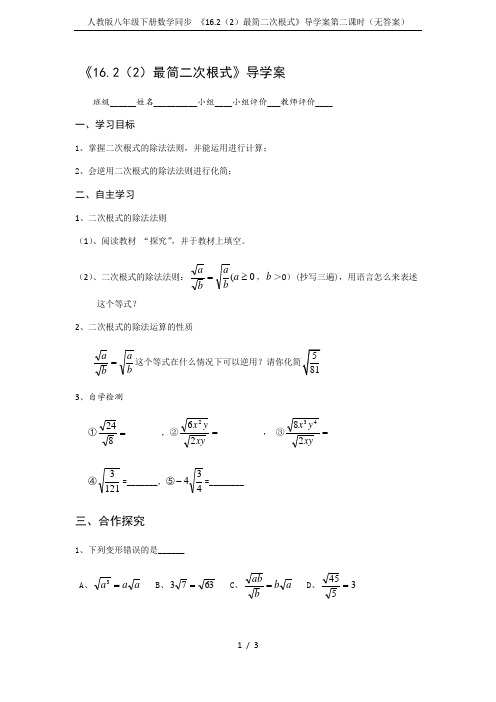 人教版八年级下册数学同步 《16.2（2）最简二次根式》导学案第二课时（无答案）
《16.2（2）最简二次根式》导学案
班级______姓名__________小组____小组评价___教师评价____
一、学习目标
1、掌握二次根式的除法法则，并能运用进行计算；
2、会逆用二次根式的除法法则进行化简；
二、自主学习
1、二次根式的除法法则
（1）、阅读教材 “探究”，并于教材上填空。
（2）、二次根式的除法法则：√a/√b = √(a/b) (a≥0，b＞0）(抄写三遍)，用语言怎么来表述
这个等式？
2、二次根式的除法运算的性质
√a/√b = √(a/b) 这个等式在什么情况下可以逆用？请你化简√(5/81)
3、自学检测
①√24/√8 = ，②√(6x²y)/√(2xy) = ， ③√(8x³y⁴)/√(2xy) =
④√(3/121) =_______，⑤－4√(3/4) =________
三、合作探究
1、下列变形错误的是______
A、√a³ = a√a B、3√7 = √63 C、√(ab)/√b = b√a D、√45/√5 = 3
1 / 3